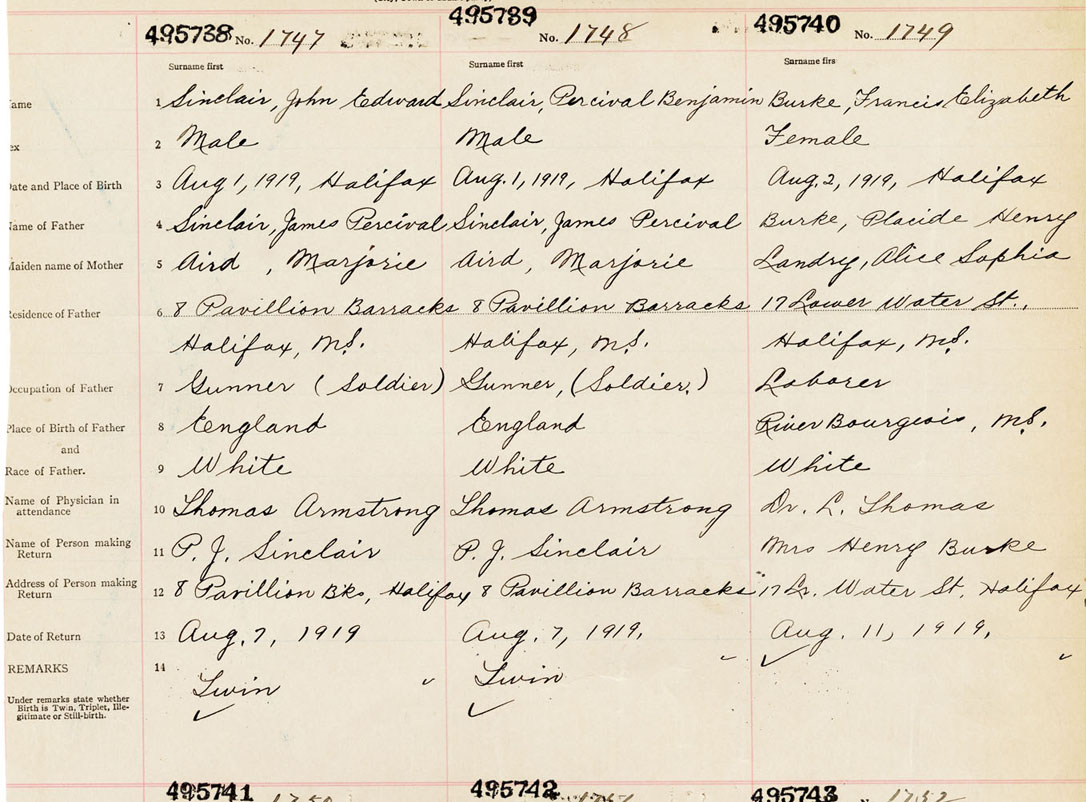 495738 No. 1747 495739 No. 1748 495740 No. 1749
Surname first Surname first Surname firs
ame 1 Sinclair, John Edward Sinclair, Percival Benjamin Burke, Francis Elizabeth
ex 2 Male Male Female
Date and Place of Birth 3 Aug 1, 1919, Halifax Aug. 1, 1919, Halifax Aug. 2, 1919, Halifax
Name of Father 4 Sinclair, James Percival Sinclair, James Percival Burke, Placide Henry
Maiden name of Mother 5 Aird , Marjorie Aird , Marjorie Landry, Alice Sophia
Residence of Father 6 8 Pavillion Barracks 8 Pavillion Barracks 17 Lower Water St.,
Halifax, N.S. Halifax, N.S. Halifax, N.S.
Occupation of Father 7 Gunner (Soldier) Gunner, (Soldier.) Laborer
Place of Birth of Father 8 England England River Bourgeois, N.S.
and
Race of Father. 9 White White White
Name of Physician in
attendance 10 Thomas Armstrong Thomas Armstrong Dr. L. Thomas
Name of Person making
Return 11 P. J. Sinclair P. J. Sinclair Mrs Henry Burke
Address of Person making
Return 12 8 Pavillion Bks, Halifax 8 Pavillion Barracks 17 Lr. Water St. Halifax.
Date of Return 13 Aug. 7, 1919 Aug. 7, 1919. Aug. 11, 1919.
REMARKS 14 Twin Twin
Under remarks state whether
Birth is Twin, Triplet, Ille-
gitimate or Still-birth.
495741 495742 495743